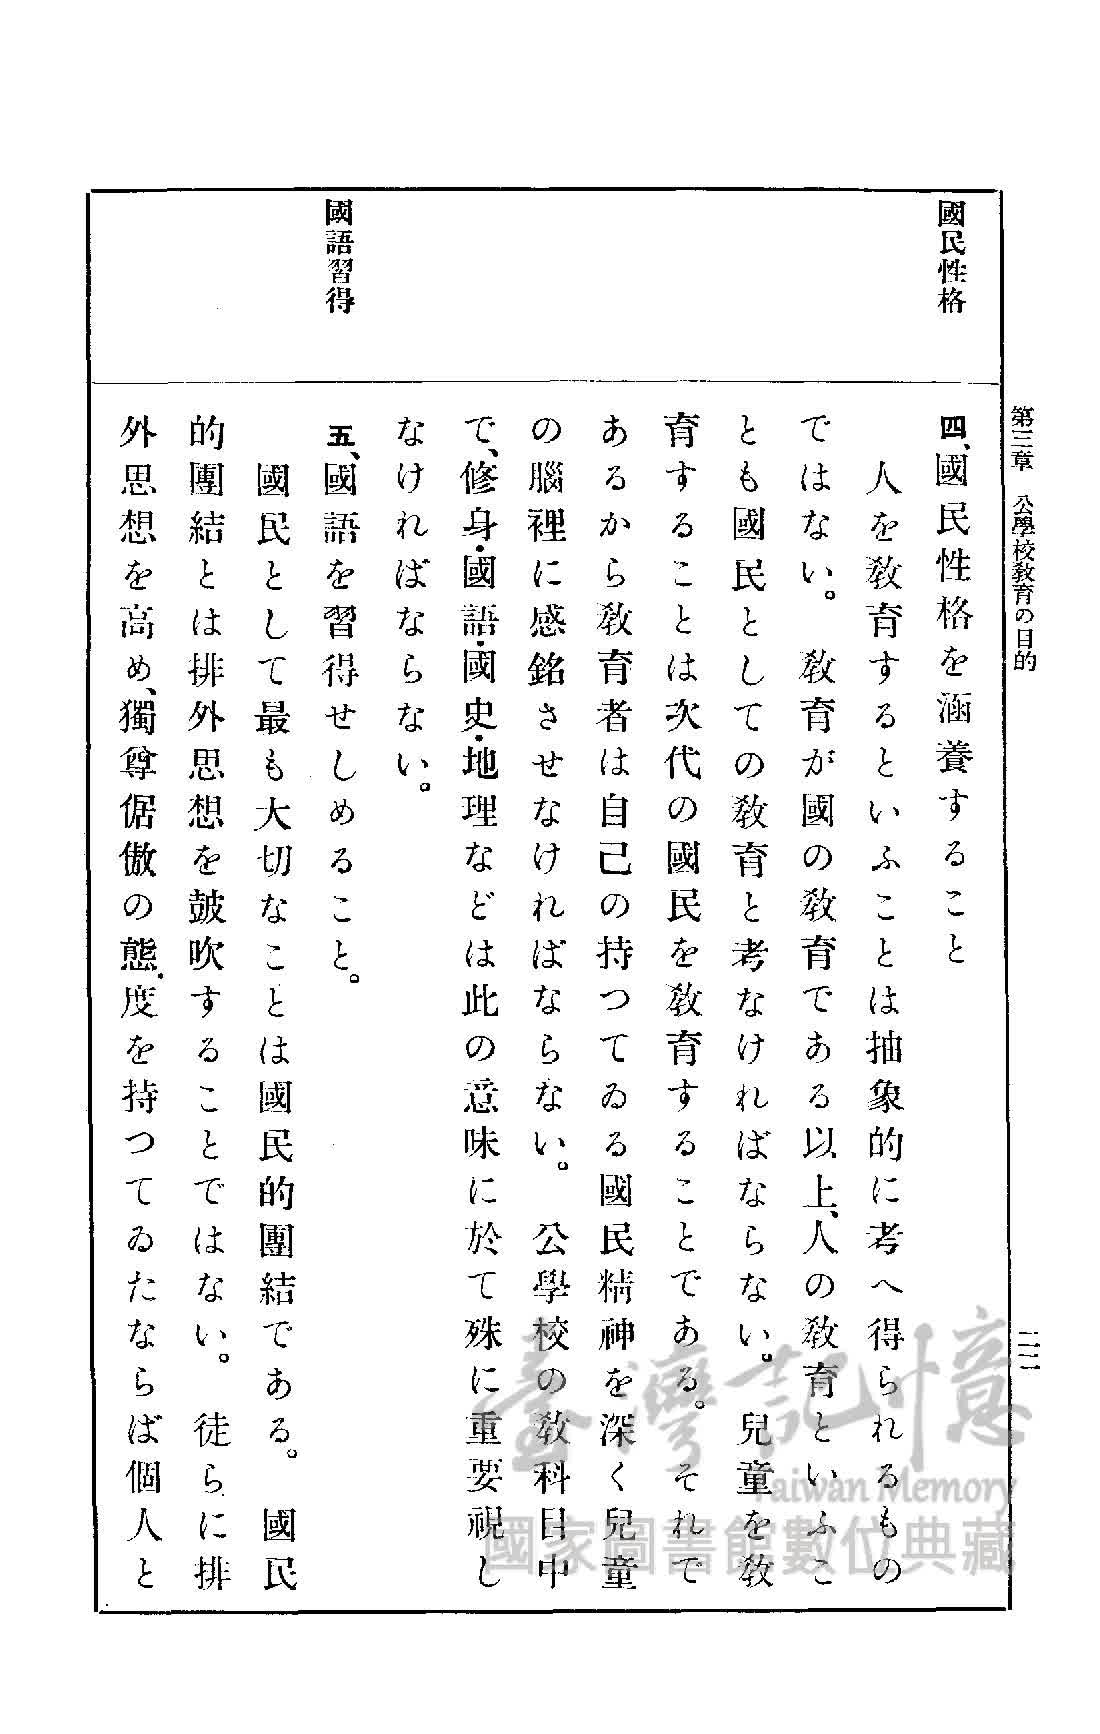 第三章　公學校教育の目的
二二
國民性格
四、國民性格を涵養すること
人を教育するといふことは抽象的に考へ得られるもの
ではない。　教育が國の教育である以上、人の教育といふこ
とも國民としての教育と考なければならない。　兒童を教
育することは次代の國民を教育することである。　それで
あるから教育者は自己の持つてゐる國民精神を深く兒童
の腦裡に感銘させなければならない。　公學校の教科目中
で、修身・國語・國史・地理などは此の意味に於て殊に重要視し
なければならない。
國語習得
五、國語を習得せしめること。
國民として最も大切なことは國民的團結である。　國民
的團結とは排外思想を鼓吹することではない。　徒らに排
外思想を高め、獨尊倨傲の態度を持つてゐたならば個人と
臺灣記憶
Taiwan Memory
國家圖書館數位典藏